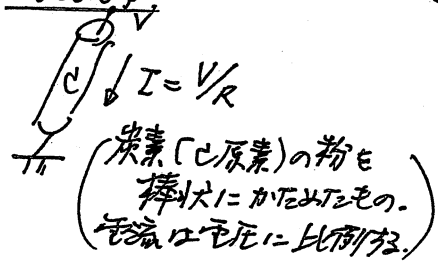 V
C
I = V/R
(炭素(C原素)の粉を
棒状にかためたもの.
電流は電圧に比例する.)